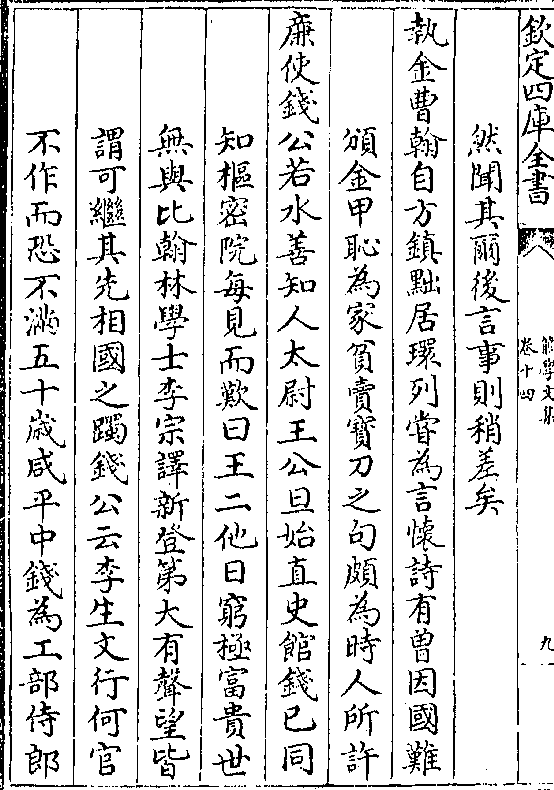 欽定四庫全書
卷十四
九
然聞其爾後言事則稍差矣
執金曹翰自方鎮黜居環列嘗為言懷詩有曾因國難
頒金甲恥為家貧賣寶刀之句頗為時人所許
廉使錢公若水善知人太尉王公旦始直史館錢已同
知樞密院每見而歎曰王二他日窮極富貴世
無與比翰林學士李宗諤新登第大有聲望皆
謂可繼其先相國之躅錢公云李生文行何官
不作而恐不滿五十歲咸平中錢為工部侍郎